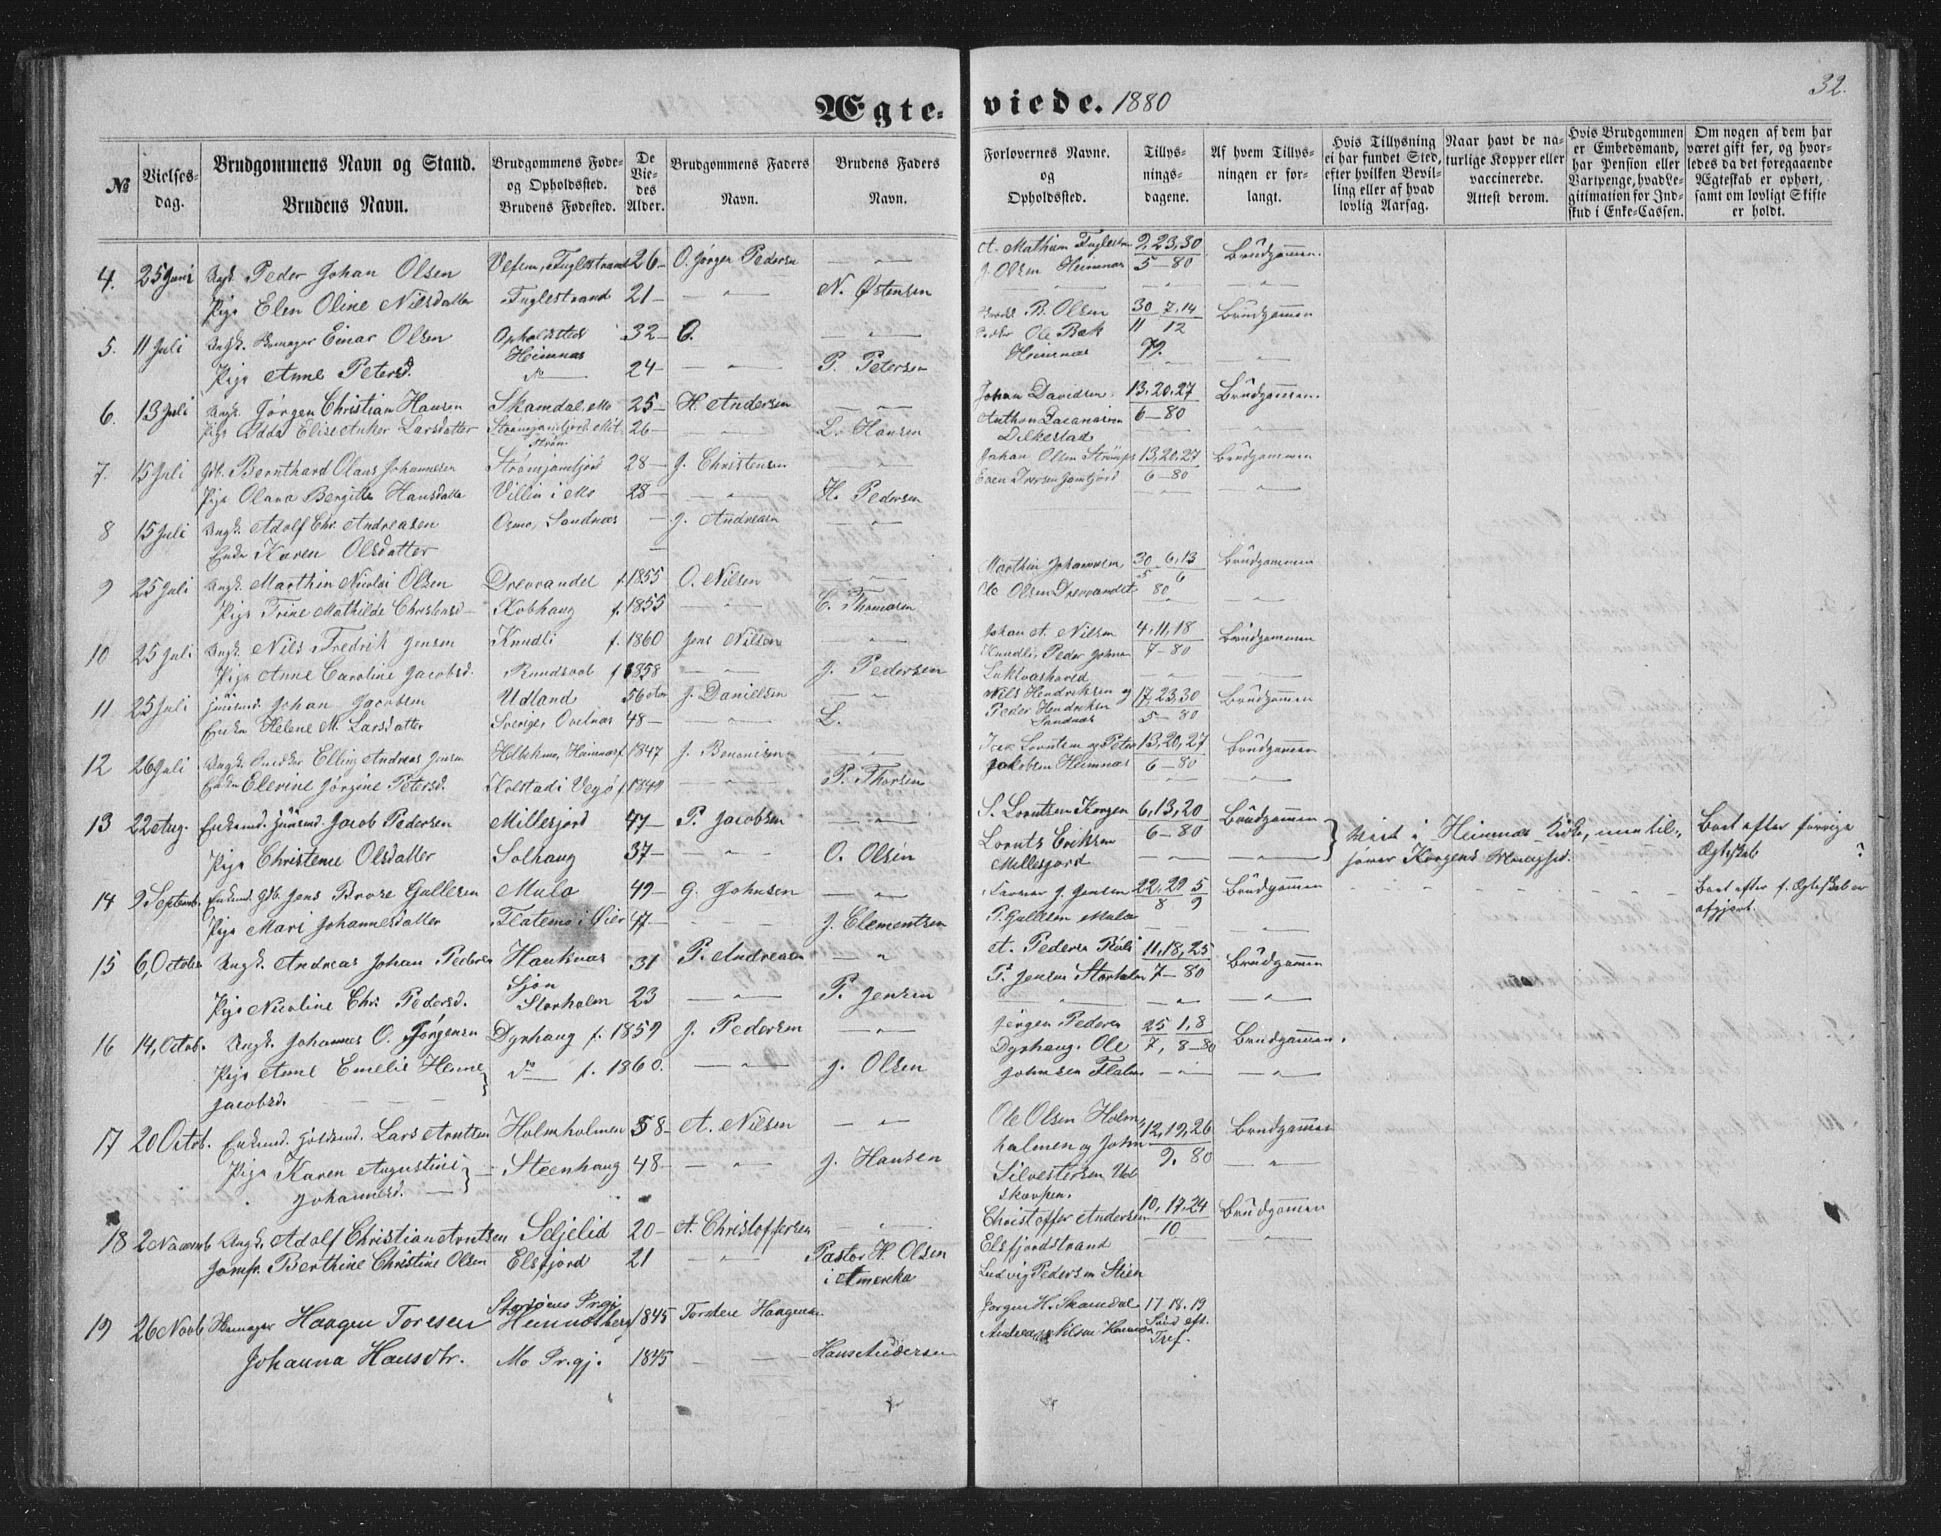 32.
Ægteviede. 1880
№
Vielsesdag.
Brudgommens Navn og Stand.
Brudens Navn.
BrudgommensFøde- og Opholdssted.
Brudens Fødested.
De Viedes Alder.
Brudgommens Faders Navn.
Brudens Faders Navn.
Forlovernes Navne. og Opholdsted.
Tillysningsdagene.
Af hvem Tillysningen er forlangt.
Hvis Tillysning ei har fundet Sted, efter hvilken Bevilling eller af hvad lovlig Aarsag.
Naar havt de naturlige Kopper eller vaccinerede. Attest derom.
Hvis Brudgommen er Embedsmand, har Pension eller Vartpenge, hvad Legitimation for Indskud i Enke-Cassen.
Om nogen af dem har været gift før, og hvorledes da det foregaaende Ægteskab er ophørt, samt om lovligt Skifte er holdt.
4. 25 Juni Ungk. Peder Johan Olsen Vefsn, Fuglestrand 26 O. Jørgen Pedersen A. Mathisen Fuglestrand 2, 23, 30 Brudgommen.
Pige Elen Oline Nilsdatter Fuglestrand 21 N. Østensen J. Olsen Heimnæs 5-80
5. 11 Juli Ungk. Einar Olsen Opholdsted Heimnæs 32 O. B. Olsen 30 7, 14 Brudgommen
Pige Anne Petersd. do 24 P. Petersen Ole Bak Heimnæs 11 12 79.
6. 13 Juli Ungk. Jørgen Christian Hansen Skamdal, Mo 25 H. Andersen Johan Davidsen 13, 20, 27 Brudgommen.
Pige Idda Elise Anker Larsdatter 26 L. Hansen Anthon 6-80
7. 15 Juli Gdb. Bernthard Olaus Johannesen Strømjamfjord 28 J. Christensen Johan Olsen 13, 20, 27 Brudgommen
Pige Olava Bergitte Hansdatter Villin i Mo 28 H. Pedersen Even Iversen Jamfjord 6-80
8 15 Juli Ungk. Adolf Chr. Andreasen Osmo, Sandnæs J. Andreasen
Enke Karen Olsdatter
9 25 Juli Ungk. Marthin Nicolai Olsen Drevvandet f. 1855 O. Nilsen Marthin Johannesen 30 6, 13 Brudgommen
Pige Trine Mathilde Christensd Kobhaug f. 1855 C. Thomasen Ole Olsen Drevvandet 5 6 80
10 25 Juli Ungk. Nils Fredrik Jensen Knudli f. 1860 Jens Nilsen Johan A. Nilsen 4, 11, 18 Brudgommen
Pige Anne Caroline Jacobsd. f 1858 J. Pedersen Knudli, Peder Johan 7-80
11 25 Juli Huusmd. Johan Jacobsen Udland 56 J. Danielsen Nils Hendriksen og 17, 23, 30 Brudgommen
Enke Helene M. Larsdatter Sverige 48 L. Peder Hendriksen Sandnæs 5-80
12 26 Juli Ungk. Elling Andreas Jensen f 1847 J. Lorntsen og Peter 13, 20, 27 Brudgommen
Enke Elevine Jørgine Petersd. Kolstad i Vegø P. Thorsen Jakobsen Heimnæs 6-80
13 22 Aug. Enkemd. Huusmd. Jacob Pedersen Millerjord 47 P. Jacobsen S. Lorntsen Korgen 6, 13, 20 Brudgommen Viet i Heimnæs Kirke, men til- Bort efter forrige
Pige Christence Olsdatter Solhaug 37 O. Olsen Lornts Eriksen Millerjord 6-80 hører Korgens Menighed. Ægteskab ?
14 9 Septemb. Enkemd. Gdb. Jens Brose Gullesen Mula 49 G. Johnsen J. Jensen 22, 29 5 Brudgommen Bort efter f. Ægteskab er
Pige Mari Johannesdatter Flatemo i Øier 47 J. Clementsen P. Gullesen Mula 8 9 afgjort.
15 6, October Ungk. Andreas Johan Pedersen Hauknæs 31 P. Andreasen A. Pedersen 11, 18, 25 Brudgommen
Pige Nicoline Chr. Pedersd. Sjøn Storholm 23 P. Jensen P. Jensen Storholm 7-80
16 14, Octob. Ungk. Johannes O. Jørgensen Dyrhaug f. 1859 J. Pedersen Jørgen Pedersen 25 1, 8 Brudgommen.
Pige Anne Emelie Henne do f. 1860. J. Olsen Dyrhaug. Ole 7, 8-80
Jacobsd. Johnsen
17 20 Octob. Enkemd. Lars Arntsen Holmholmen 58 A. Nilsen Ole Olsen Holm- 12, 19, 26 Brudgommen
Pige Karen Augustine Steenhaug 48 J. Hansen holmen og John 9. 80
Johannesd. Silvestersen
18 2 Novemb Ungk. Adolf Christian Arntsen Seljelid 20 A. Christoffersen Christoffer Andersen 10, 17, 24 Brudgommen
Jomfr. Berthine Christine Olsen Elsfjord 21 Pastor H. Olsen Elsfjordstrand 10
i Amerika Ludvig Pedersen Stien
19 26 Novb Haagen Toresen 1845 Torstere Haagensen Jørgen H. Skamdal 17. 18. 19
Johanna Hansdtr. Mo Pr.gj. 1845 Hans Andersen Andreas Nilsen Sønd eft. Tref.